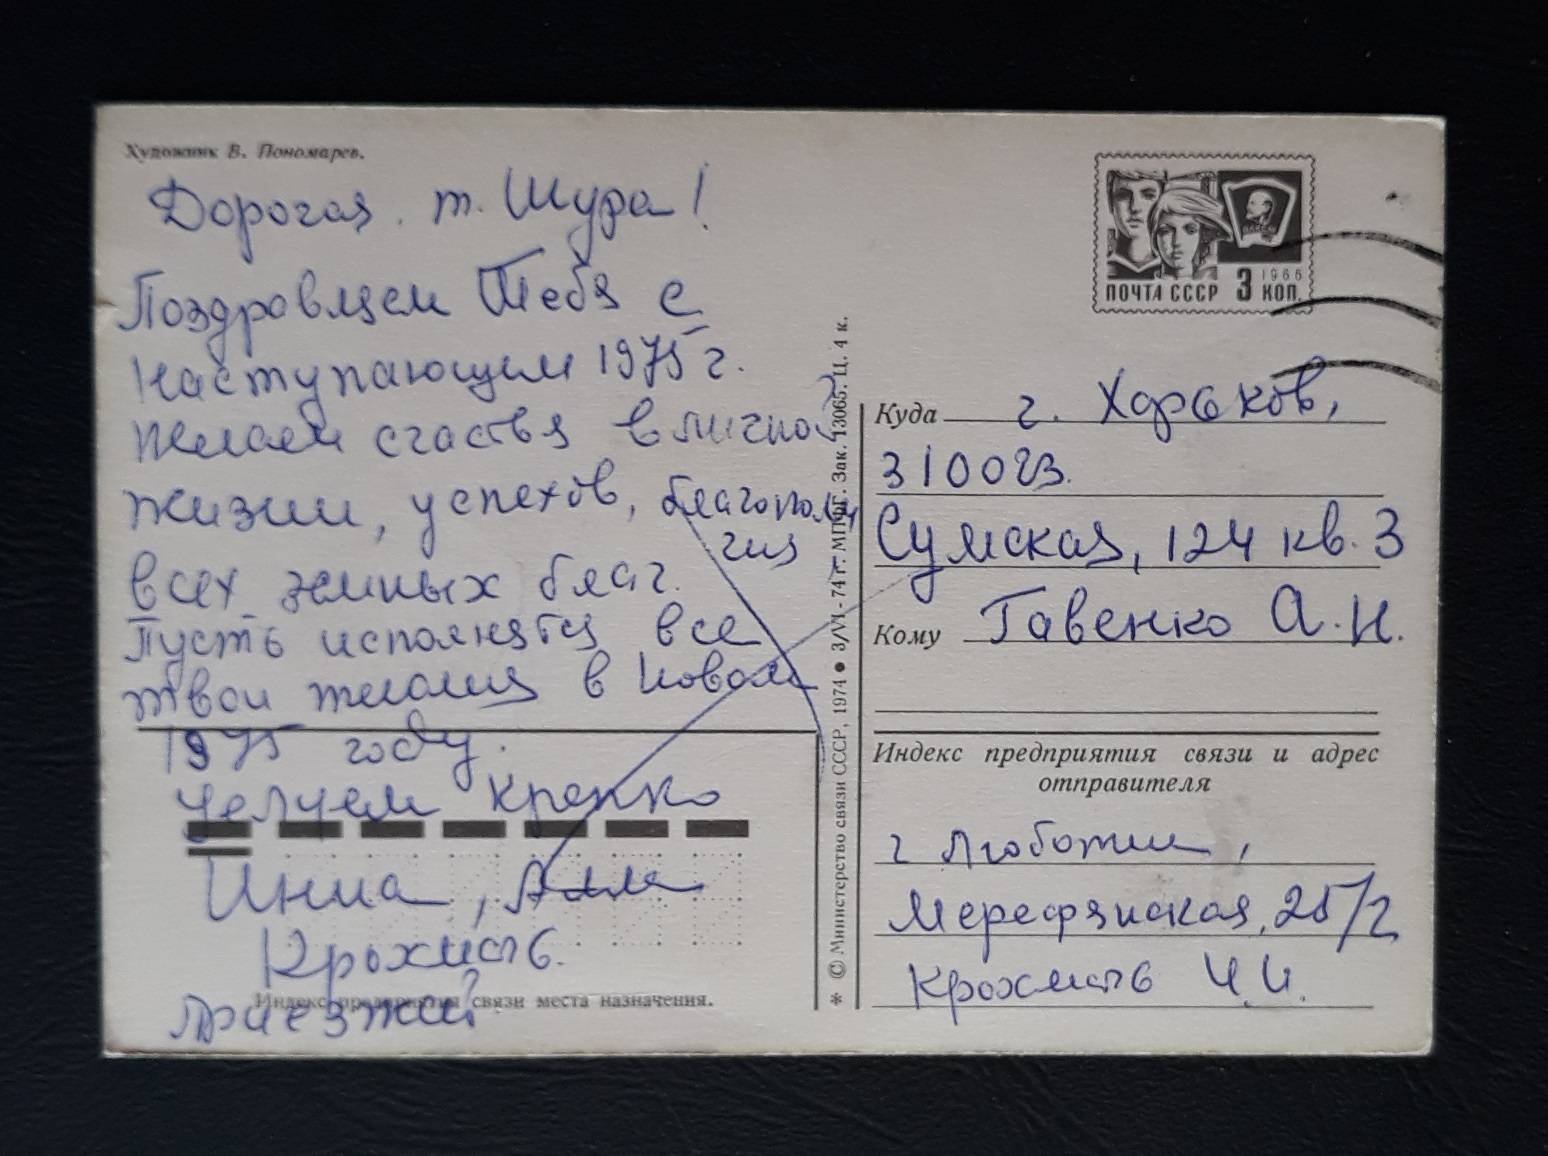 Художник В. Пономарев.
Дорогая т. Шура!
Поздровляем Тебя с
наступающим 1975 г.
Желаем счастья в личной
жизни, успехов, благополу
чия
всех земных благ.
Пусть исполнятся все
твои желания в Новом
1975 году.
Целуем крепко
Инна, Алла
Крохмаль.
Приезжай
Индекс предприятия связи места назначения.
* © Министерство связи СССР, 1974 ● 3/VI-74 г. МПФГ. Зак. 13065. Ц. 4 к.
1966
ПОЧТА СССР 3 КОП.
Куда г. Харьков,
310023.
Сумская, 124 кв. 3
Кому Гавенко А. И.
Индекс предприятия связи и адрес
отправителя
г Люботин,
Мерефянская, 25/2